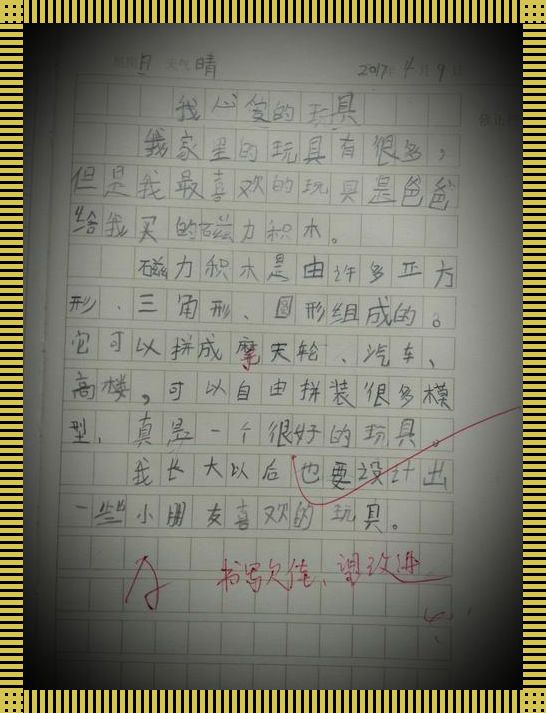 星期日 天气 晴 2017年4月9日
我心爱的玩具
我家里的玩具有很多,
但是我最喜欢的玩具是爸爸
给我买的磁力积木。
磁力积木是由许多正方
形、三角形、圆形组成的。
它可以拼成摩天轮、汽车、
高楼,可以自由拼装很多模
型,真是一个很好的玩具。
我长大以后也要设计出
一些小朋友喜欢的玩具。
书写欠佳、请改进